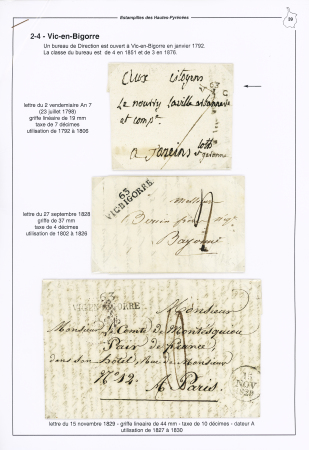 Estampilles des Hautes-Pyrénées
39
2-4 - Vic-en-Bigorre
Un bureau de Direction est ouvert à Vic-en-Bigorre en janvier 1792.
La classe du bureau est de 4 en 1851 et de 3 en 1876.
Aux Citoyens
et comp.
a
lot
et garonne
lettre du 2 vendemiaire An 7
(23 juillet 1798)
griffe linéaire de 19 mm
taxe de 7 décimes
utilisation de 1792 à 1806
63
VICBIGORRE
Bayonne
lettre du 27 septembre 1828
griffe de 37 mm
taxe de 4 décimes
utilisation de 1802 à 1826
Monsieur
Monsieur le Comte de Montesquiou
Pair de france
dans son hôtel, Rue de Monsieur
N.º 12. A Paris.
NOV
lettre du 15 novembre 1829 - griffe linéaire de 44 mm - taxe de 10 décimes - dateur A
utilisation de 1827 à 1830